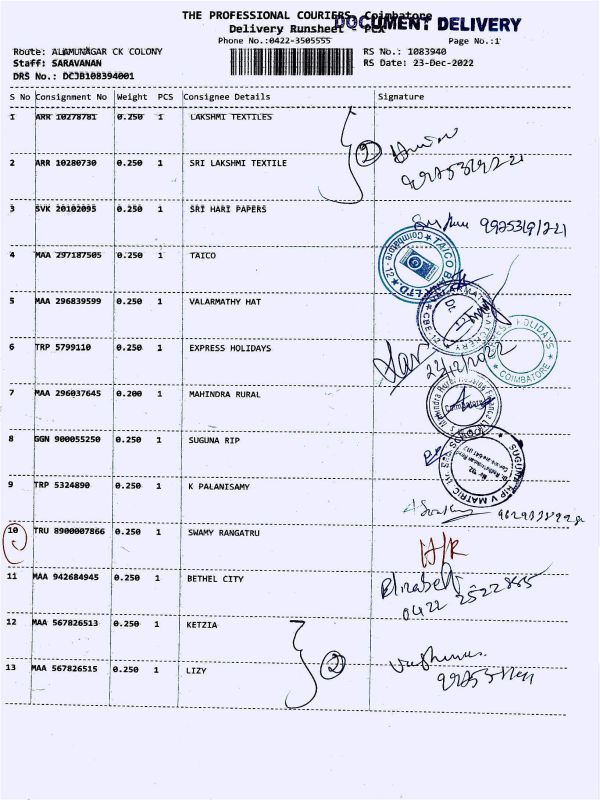 THE PROFESSIONAL COURIERS, Coimbatore
DOCUMENT DELIVERY
Delivery Runsheet PCX
Phone No.:0422-3505555 Page No.:1
Route: ALAMUNAGAR CK COLONY RS No.: 1083940
Staff: SARAVANAN RS Date: 23-Dec-2022
DRS No.: DCJB108394001
S No Consignment No Weight PCS Consignee Details Signature
1 ARR 10278781 0.250 1 LAKSHMI TEXTILES
2
2 ARR 10280730 0.250 1 SRI LAKSHMI TEXTILE
3 SVK 20102095 0.250 1 SRI HARI PAPERS
4 MAA 297187505 0.250 1 TAICO
TAICO BANK LTD Coimbatore - 12
5 MAA 296839599 0.250 1 VALARMATHY HAT
6 TRP 5799110 0.250 1 EXPRESS HOLIDAYS
HOLIDAYS COIMBATORE
7 MAA 296037645 0.200 1 MAHINDRA RURAL
Coimbatore
8 GGN 900055250 0.250 1 SUGUNA RIP
SUGUNA RIP V MATRIC
9 TRP 5324890 0.250 1 K PALANISAMY
10 TRU 8900007866 0.250 1 SWAMY RANGATRU
H/R
11 MAA 942684945 0.250 1 BETHEL CITY
0422 2522885
12 MAA 567826513 0.250 1 KETZIA
2
13 MAA 567826515 0.250 1 LIZY